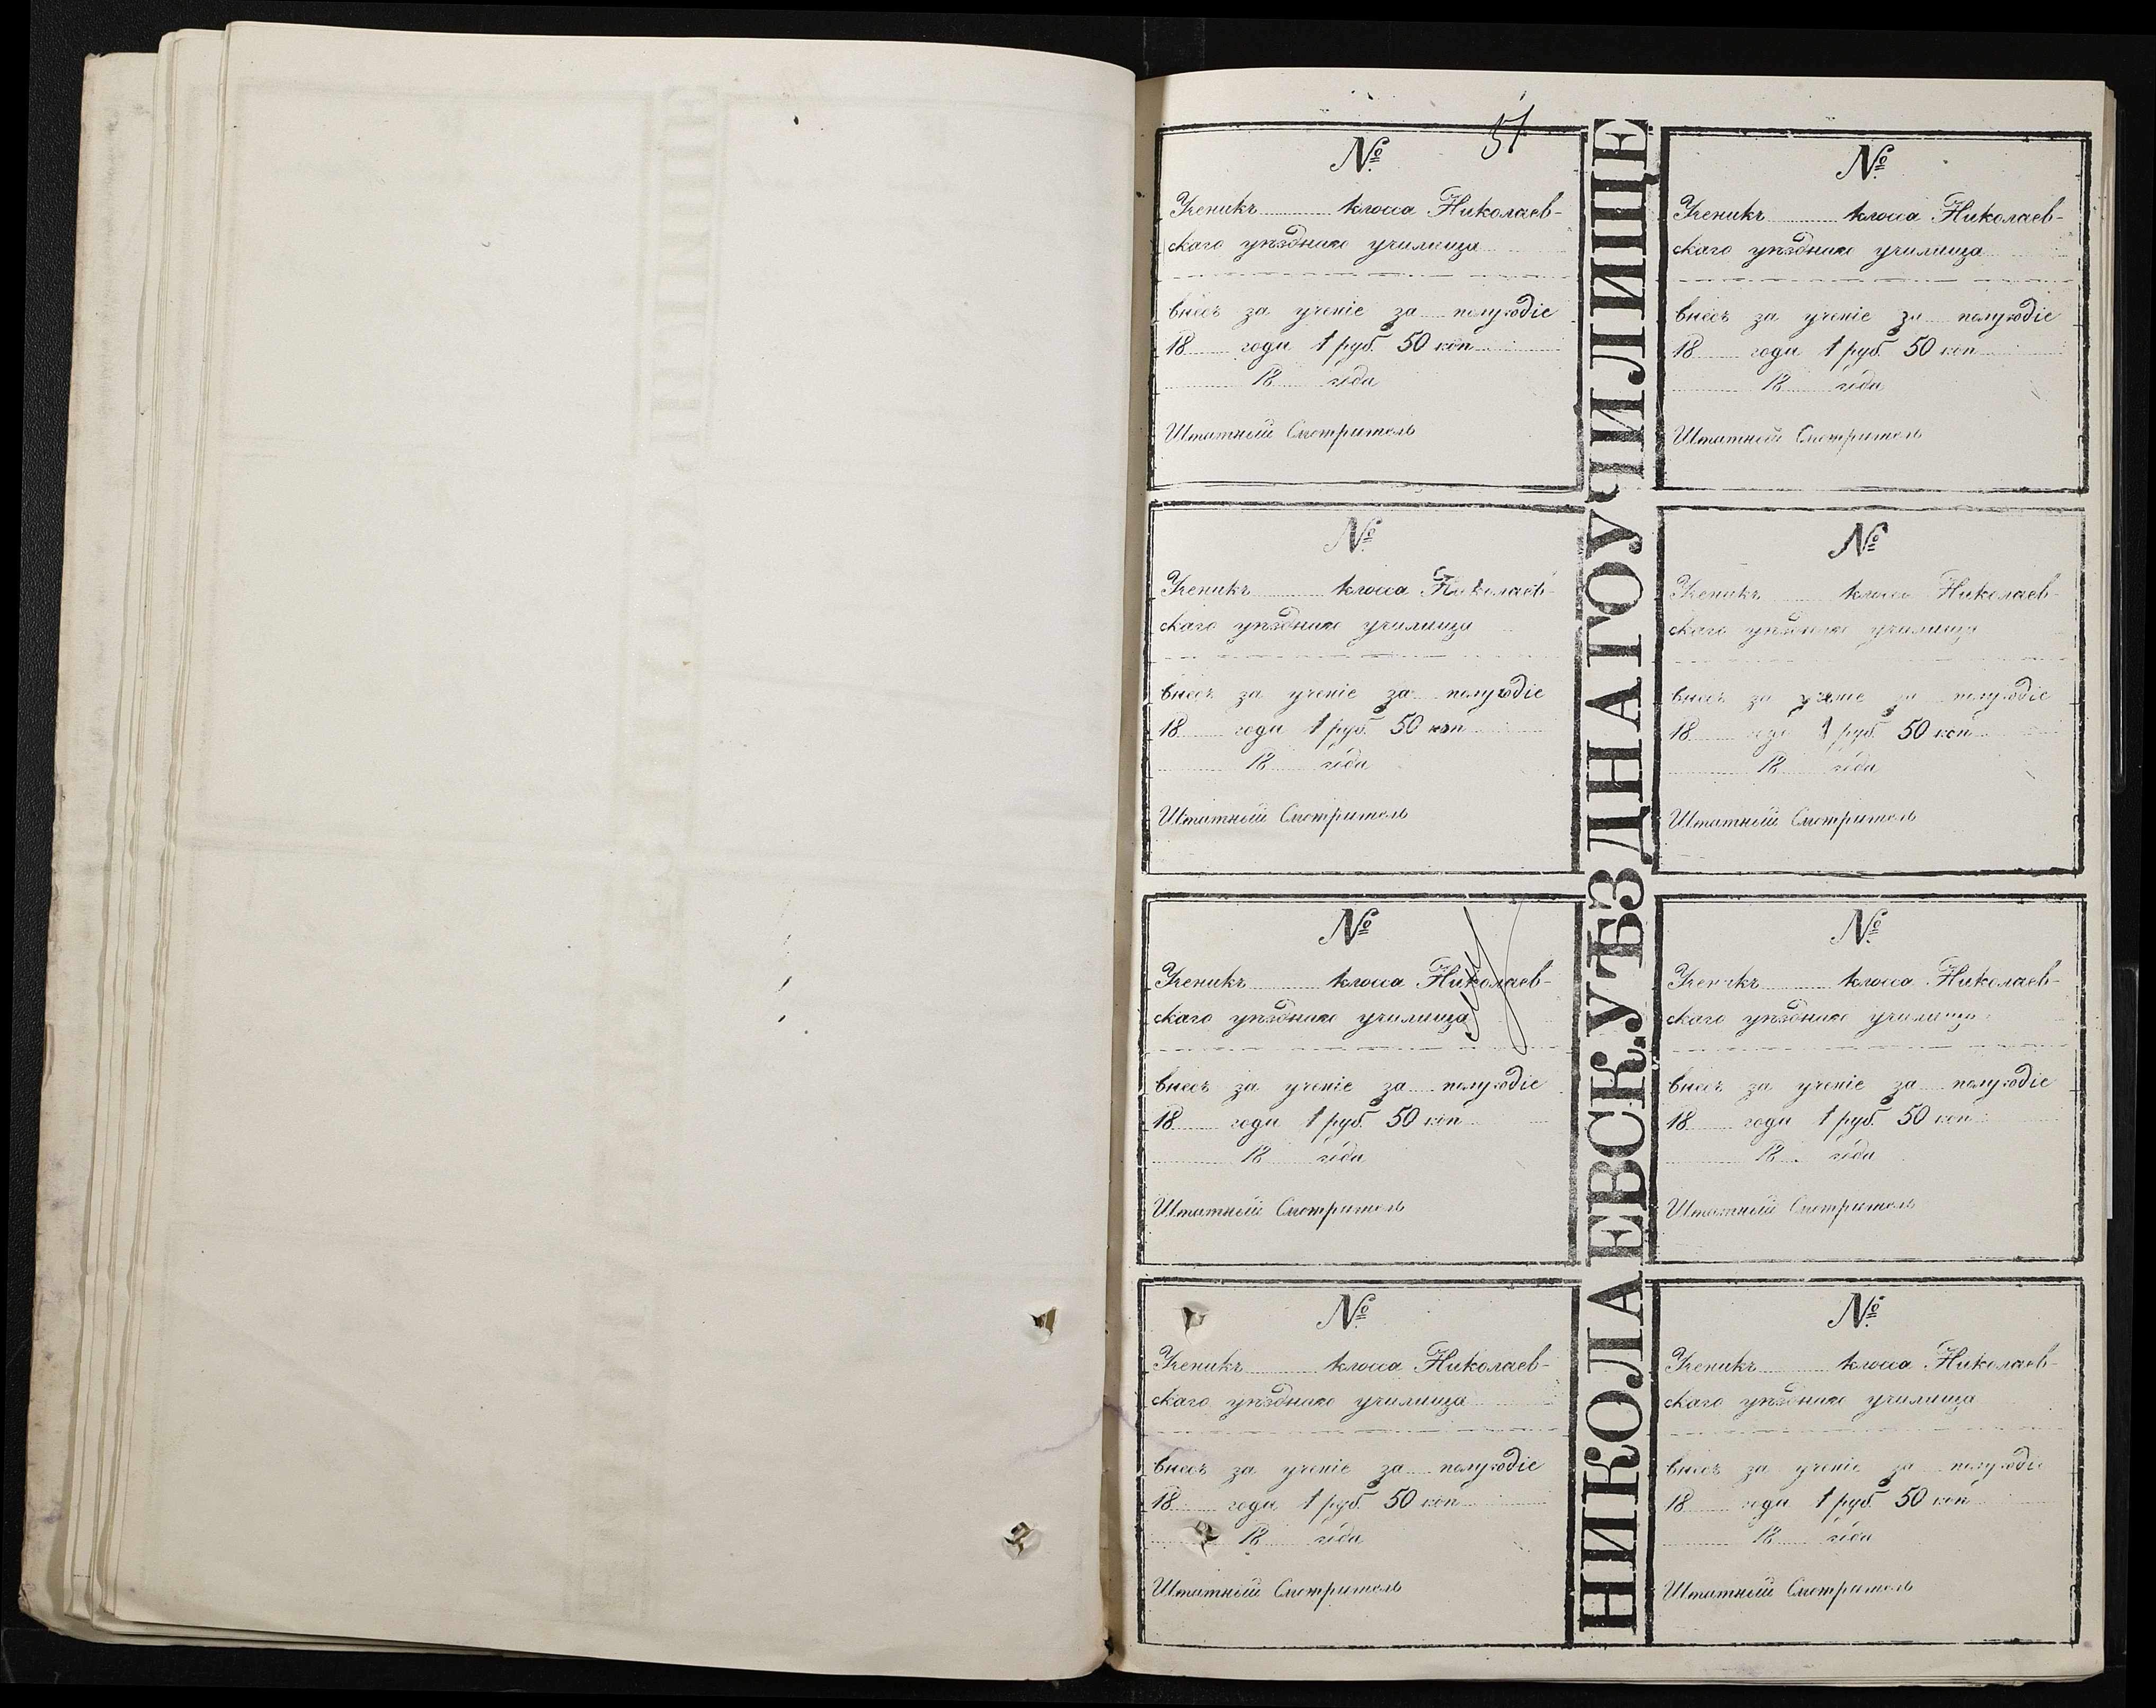 51
№
Ученикъ класса Николаев-
скаго уѣзднаго училища
внесъ за ученіе за полугодіе
18 года 1 руб. 50 коп
18 года
Штатный Смотритель
№
Ученикъ класса Николаев-
скаго уѣзднаго училища
внесъ за ученіе за полугодіе
18 года 1 руб. 50 коп
18 года
Штатный Смотритель
№
Ученикъ класса Николаев-
скаго уѣзднаго училища
внесъ за ученіе за полугодіе
18 года 1 руб. 50 коп
18 года
Штатный Смотритель
№
Ученикъ класса Николаев-
скаго уѣзднаго училища
внесъ за ученіе за полугодіе
18 года 1 руб. 50 коп
18 года
Штатный Смотритель
НИКОЛАЕВСК. УѢЗДНАГО УЧИЛИЩЕ
№
Ученикъ класса Николаев-
скаго уѣзднаго училища
внесъ за ученіе за полугодіе
18 года 1 руб. 50 коп
18 года
Штатный Смотритель
№
Ученикъ класса Николаев-
скаго уѣзднаго училища
внесъ за ученіе за полугодіе
18 года 1 руб. 50 коп
18 года
Штатный Смотритель
№
Ученикъ класса Николаев-
скаго уѣзднаго училища
внесъ за ученіе за полугодіе
18 года 1 руб. 50 коп
18 года
Штатный Смотритель
№
Ученикъ класса Николаев-
скаго уѣзднаго училища
внесъ за ученіе за полугодіе
18 года 1 руб. 50 коп
18 года
Штатный Смотритель